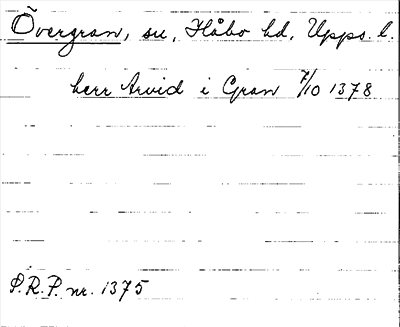 Övergran, sn, Håbo hd, Upps. l.
herr Arvid i Gran 7/10 1378
P.R.P. nr. 1375